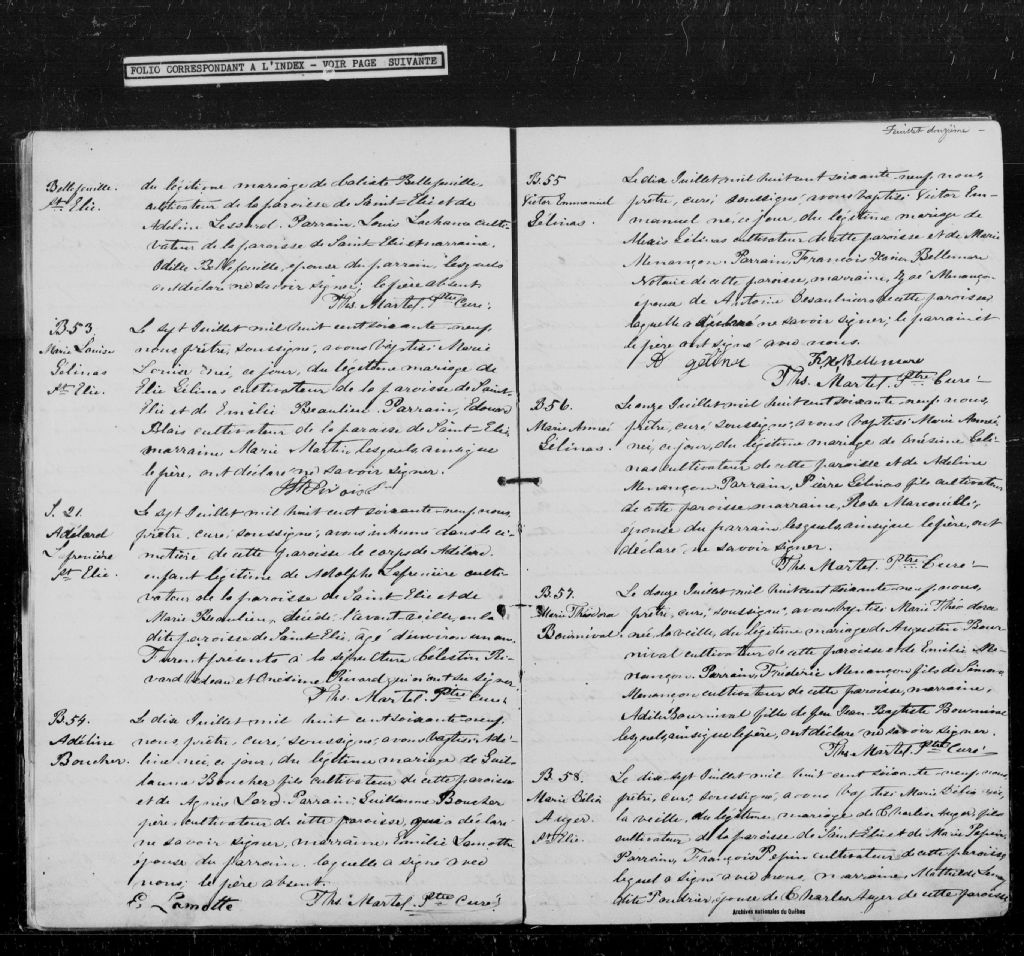 FOLIO CORRESPONDANT A L'INDEX - VOIR PAGE SUIVANTE
Bellefeuille.
St. Elie.
du légitime mariage de Calixte Bellefeuille,
cultivateur de la paroisse de Saint-Elie et de
Adeline Lessard. Parrain, Louis Lachance culti-
vateur de la paroisse de Saint Elie et marraine,
Odille Bellefeuille, épouse du parrain, lesquels
ont déclaré ne savoir signer; le père absent
Ths. Martel. Ptre Curé.
B.53.
Marie Louise
Gélinas
St. Elie.
Le sept Juillet mil huit cent soixante-neuf
nous, prêtre, soussigné, avons baptisé Marie
Louise née ce jour, du légitime mariage de
Elie Gélinas cultivateur de la paroisse de Saint-
Elie et de Emilie Beaulieu. Parrain, Edouard
Blais cultivateur de la paroisse de Saint-Elie,
marraine Marie Martin lesquels, ainsi que
le père, ont déclaré ne savoir signer.
S. 21.
Adélard
Lafrenière
St. Elie.
Le sept Juillet mil huit cent soixante-neuf, nous,
prêtre, curé, soussigné, avons inhumé dans le ci-
metière de cette paroisse le corps de Adélard
enfant légitime de Adolphe Lafrenière culti-
vateur de la paroisse de Saint-Elie et de
Marie Beaulieu, décédé l'avant veille, en la
dite paroisse de Saint-Elie, agé d'environ un an.
Furent présents à la sépulture Célestin Ri-
vard et Onésime Rivard qui n'ont su signer.
Ths. Martel. Ptre Curé.
B.54.
Adéline
Boucher.
Le dix Juillet mil huit cent soixante neuf
nous, prêtre, curé, soussigné, avons baptisé Adé-
line née, ce jour, du légitime mariage de Guil-
laume Boucher fils cultivateur de cette paroisse
et de Agnès Lord. Parrain, Guillaume Boucher
père, cultivateur de cette paroisse, qui a déclaré
ne savoir signer, marraine, Emilie Lamotte
épouse du parrain laquelle a signé avec
nous; le père absent.
E. Lamotte Ths. Martel. Ptre Curé.
Feuillet douzième -
B.55
Victor Emmanuel
Gélinas.
Le dix Juillet mil huit cent soixante neuf, nous,
prêtre, curé, soussigné, avons baptisé Victor Em-
manuel né, ce jour, du légitime mariage de
Gélinas cultivateur de cette paroisse et de Marie
Menançon. Parrain, François Xavier Bellemare
Notaire de cette paroisse, marraine, Menançon
épouse de Antoine Desaulniers de cette paroisse
laquelle a déclaré ne savoir signer; le parrain et
le père ont signé avec nous.
F. X. Bellemare
Ths. Martel, Ptre Curé.
B.56.
Marie Anne
Gélinas.
Le onze Juillet mil huit cent soixante-neuf, nous,
prêtre, curé soussigné, avons baptisé Marie Anne,
née, ce jour, du légitime mariage de Onésime Géli-
nas cultivateur de cette paroisse et de Adéline
Menançon. Parrain, Pierre Gélinas fils cultivateur
de cette paroisse marraine, Rose Marcouiller,
épouse du parrain lesquels ainsi que le père, ont
déclaré ne savoir signer.
Ths. Martel. Ptre Curé.
B.57.
Marie Théodora
Bournival.
Le douze Juillet mil huit cent soixante-neuf, nous,
prêtre, curé, soussigné, avons baptisé Marie Théodora
née, la veille, du légitime mariage de Augustin Bour-
nival cultivateur de cette paroisse et de Emilie Me-
nançon. Parrain, Frédéric Menançon fils de Simon
Menançon cultivateur de cette paroisse, marraine,
Adèle Bournival fille de feu Jean-Baptiste Bournival
lesquels, ainsi que le père, ont déclaré ne savoir signer.
Ths. Martel Ptre Curé.
B.58.
Marie Délia
Auger.
St. Elie.
Le dix-sept Juillet mil huit cent soixante-neuf, nous,
prêtre, curé, soussigné, avons baptisé Marie Délia née,
la veille, du légitime mariage de Charles Auger, fils
cultivateur de la paroisse de Saint-Elie et de Marie Pepin.
Parrain, François Pepin cultivateur de cette paroisse
lequel a signé avec nous, marraine, Mathilde
dite Vaudrier, épouse de Charles Auger de cette paroisse
Archives nationales du Québec